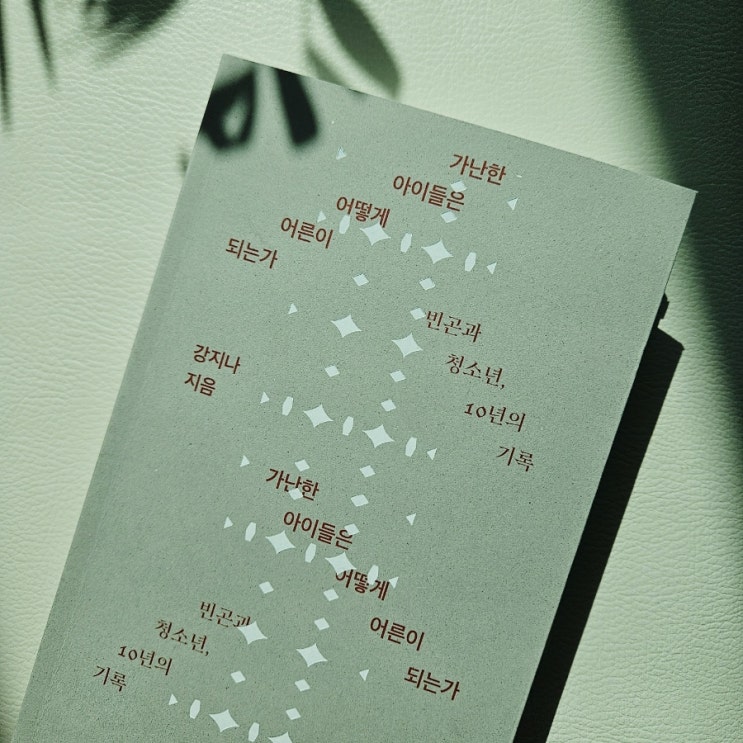 가난한
아이들은
어떻게
어른이
되는가
빈곤과
청소년,
10년의
기록
강지나
지음
가난한
아이들은
어떻게
어른이
되는가
빈곤과
청소년,
10년의
기록